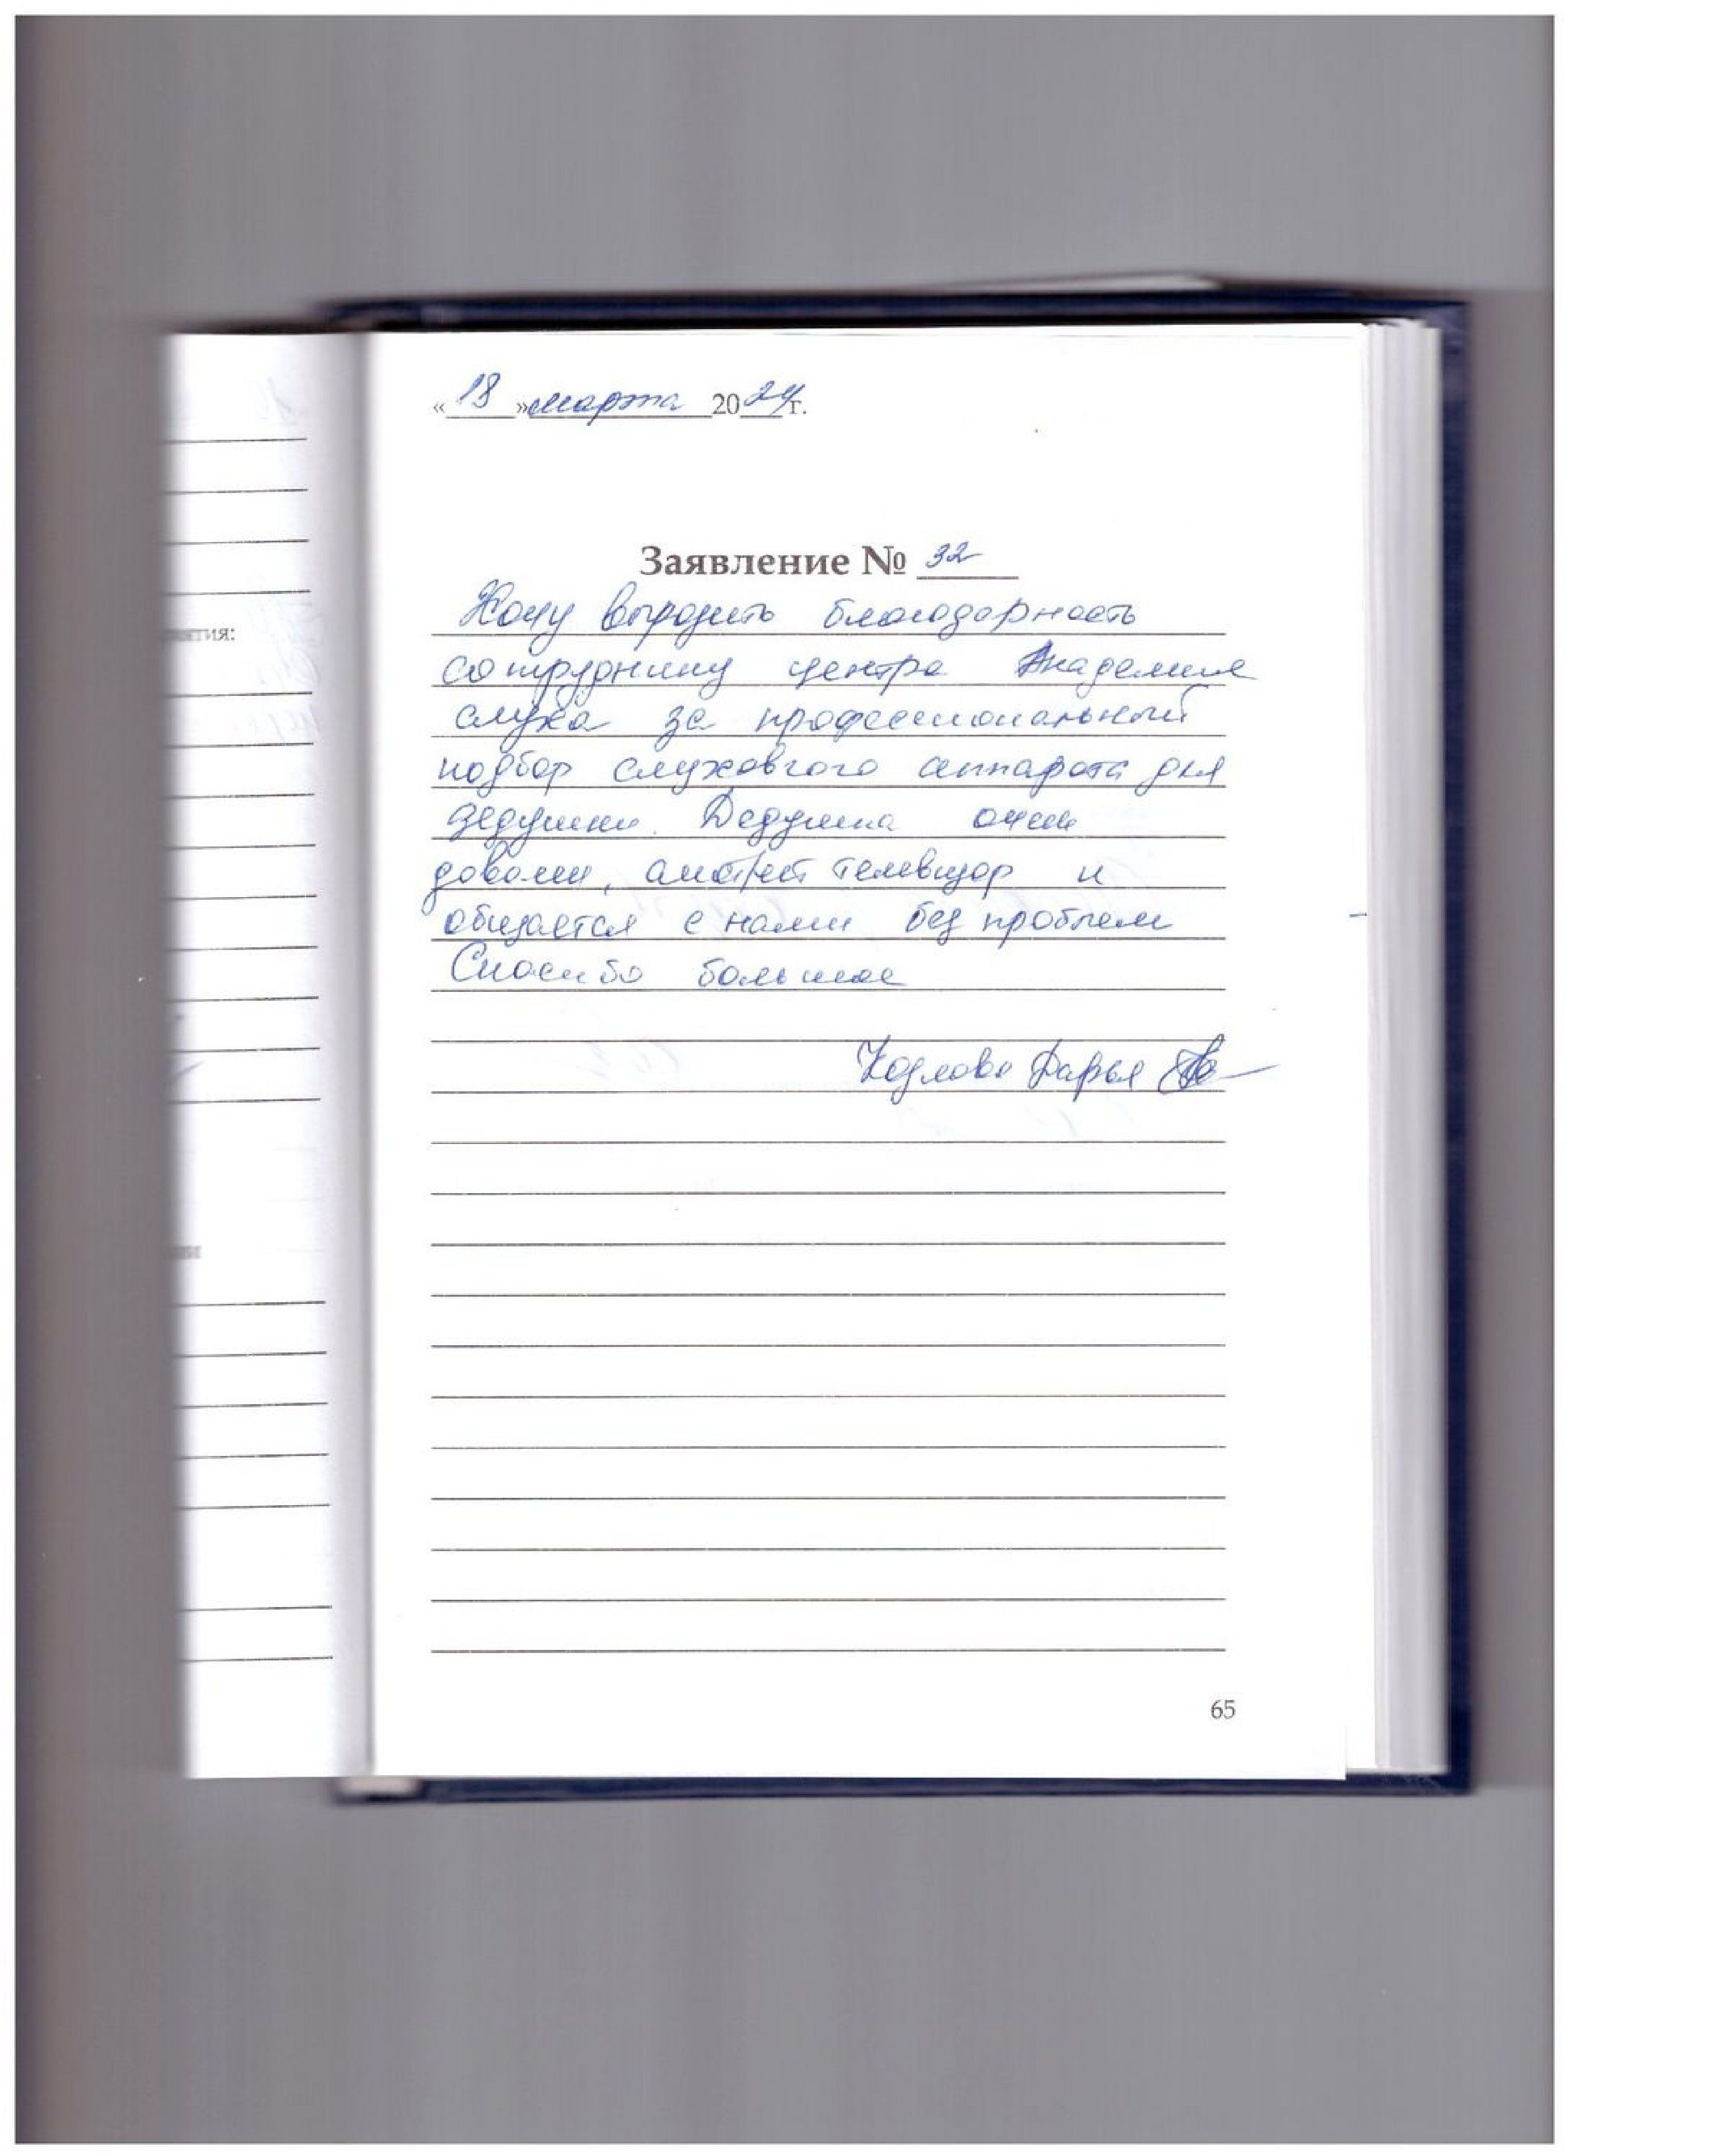 «18» марта 2024г.
Заявление № 32
Хочу выразить благодарность
сотруднику центра Академия
слуха за профессиональный
подбор слухового аппарата для
дедушки. Дедушка очень
доволен, смотрит телевизор и
общается с нами без проблем
Спасибо большое
Козлова Дарья
ятия:
65